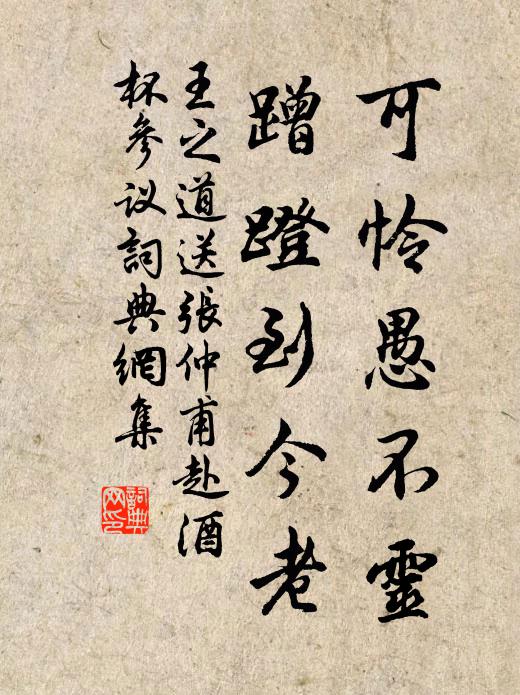 可怜愚不靈
蹭蹬到今老
王之道送張仲甫赴酒
杯參议詞典網集
詞典
网印